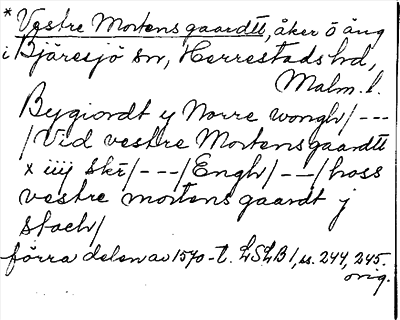 * Vestre Mortens gaardtt, åker ö äng
i Bjäresjö sn, Herrestads hd,
Malm. l.
Bygiordt y Norre wongh/ ---
/Vid vestre Mortens gaardtt
x iiij skr/ --- /Engh/ --- /hoss
vestre mortens gaardt j
stoch/
förra delen av 1570-t. LSLB 1, s. 244, 245.
orig.